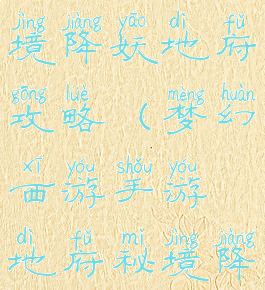 jìng jiàng yāo dì fǔ
境降妖地府
gōng lüè mèng huàn
攻略(梦幻
xī yóu shǒu yóu
西游手游
dì fǔ mì jìng jiàng
地府秘境降